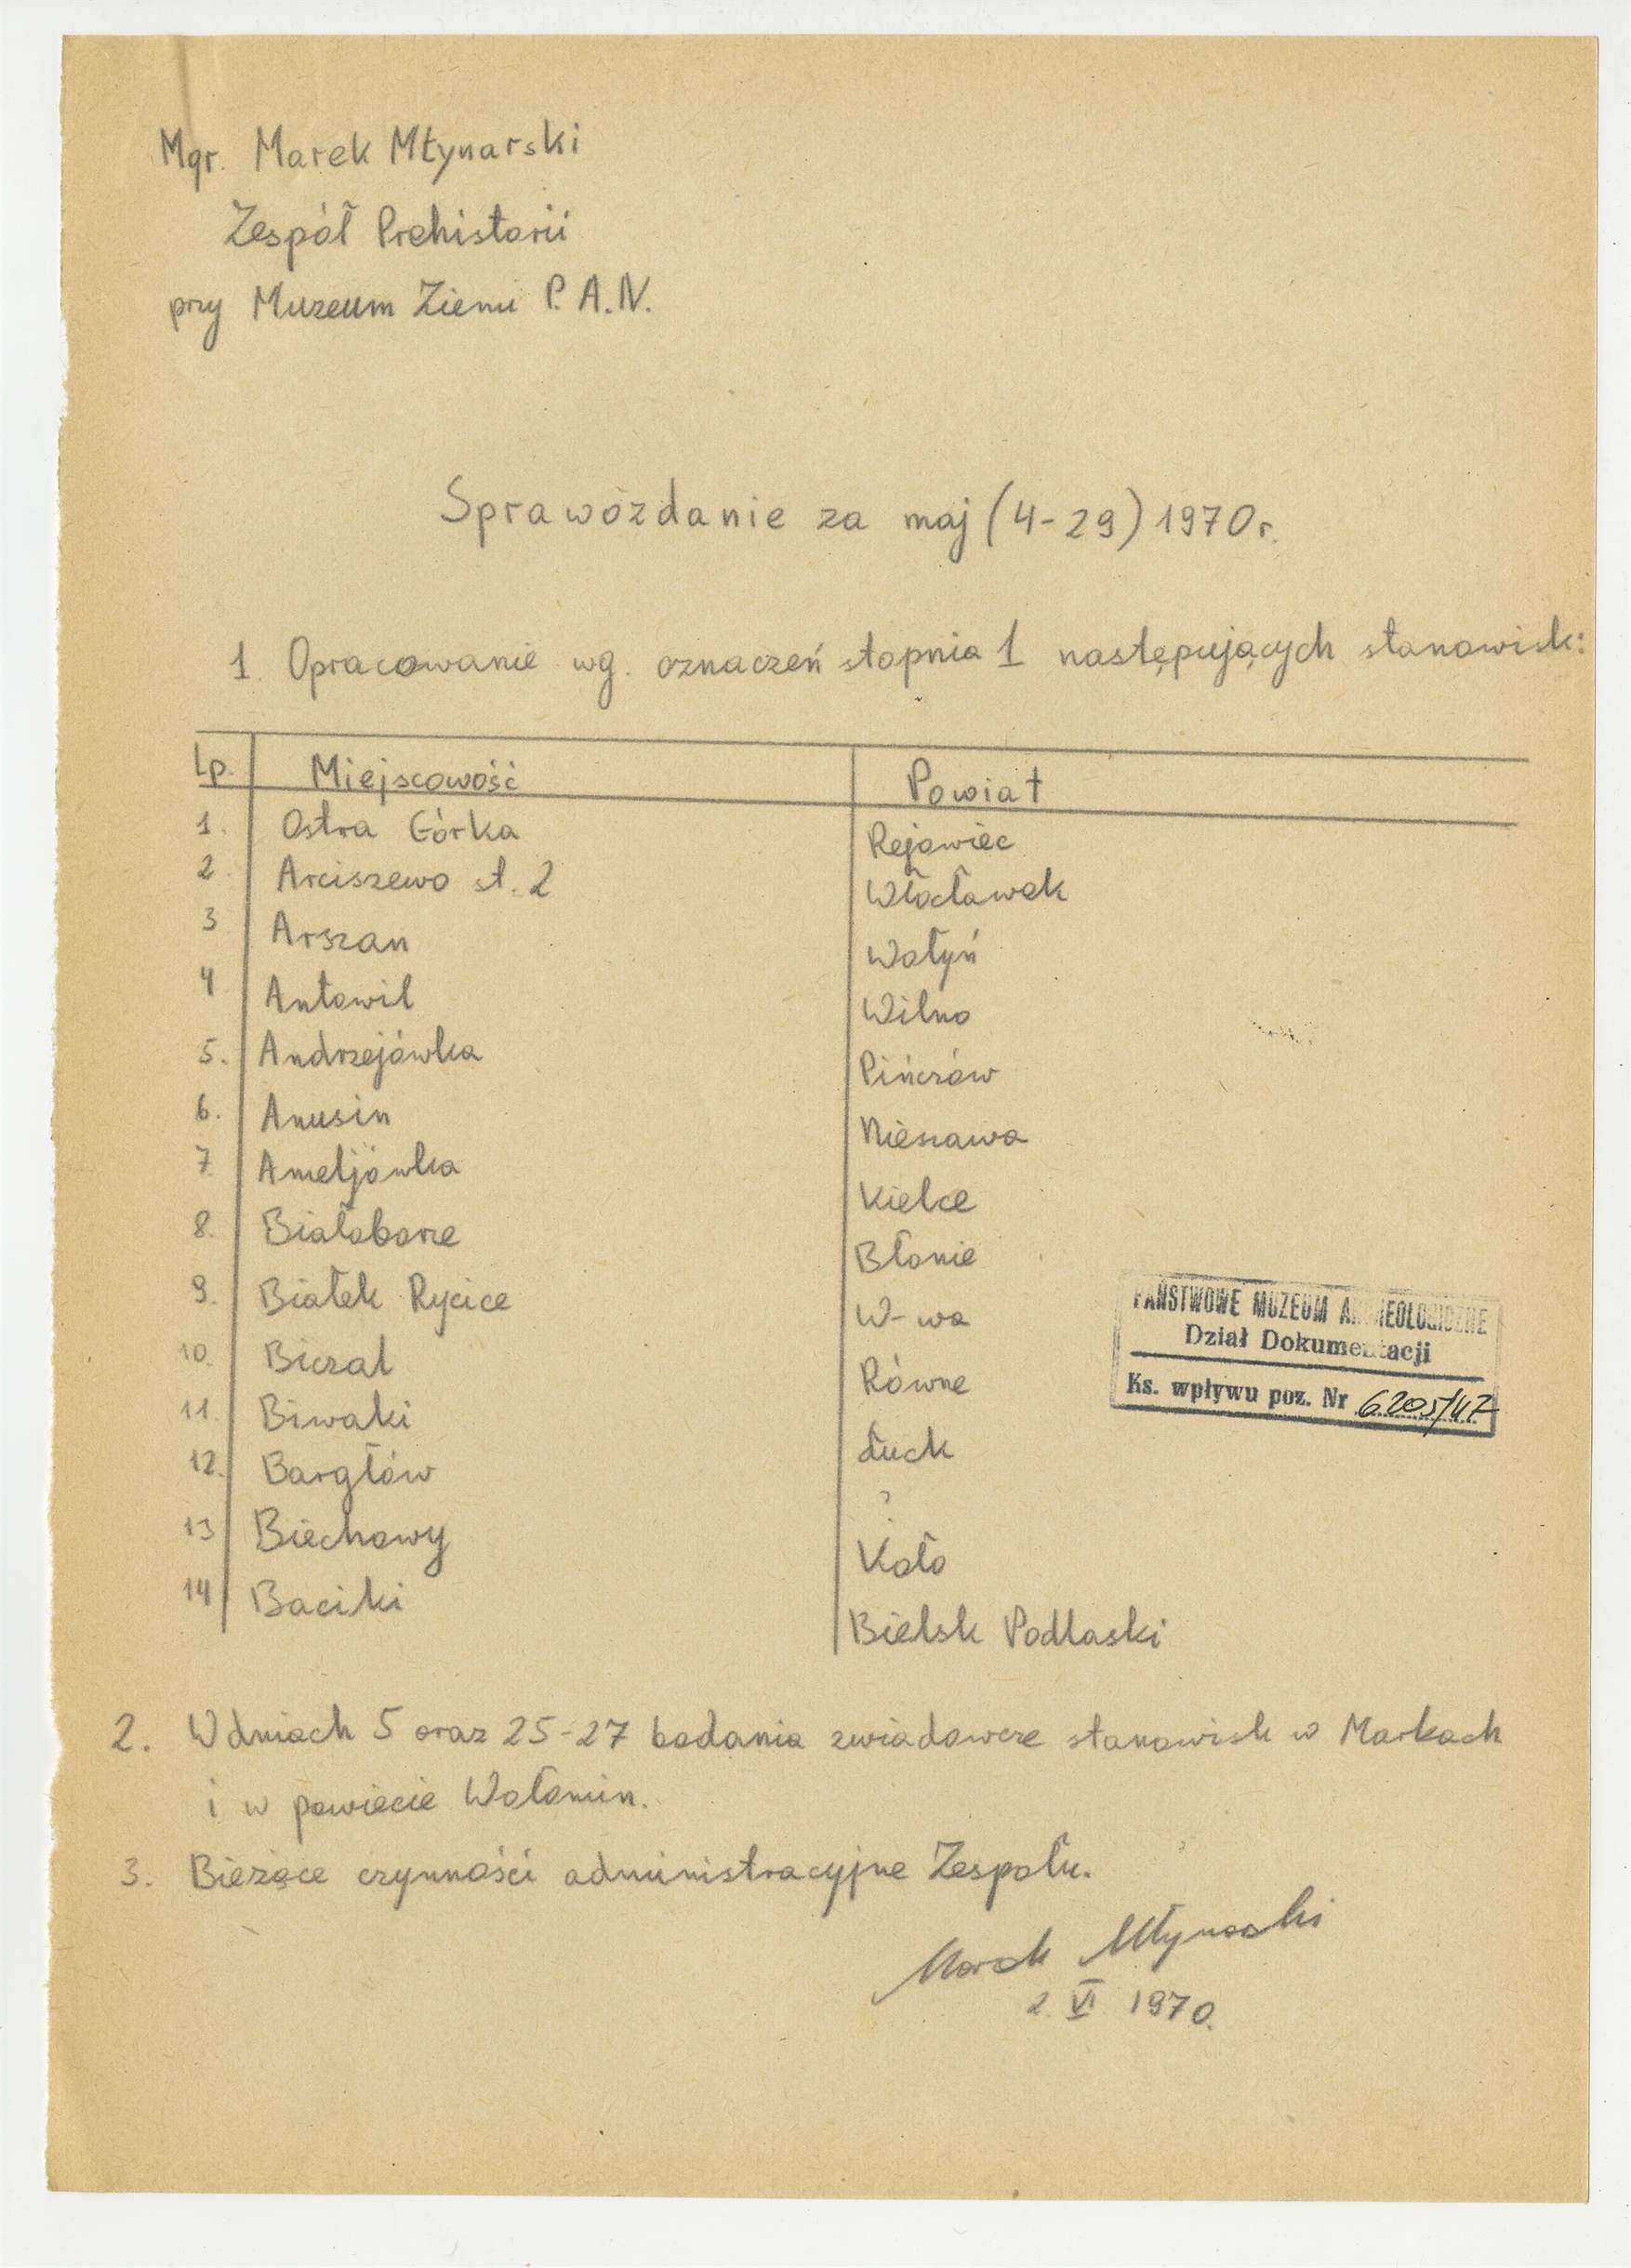 Mgr. Marek Młynarski
Zespół Prehistorii
przy Muzeum Ziemi P.A.N.
Sprawozdanie za maj (4-29) 1970r.
1. Opracowanie wg. oznaczeń stopnia 1 następujących stanowisk:
Lp. Miejscowość Powiat
1. Ostra Górka Rejowiec
2. Arciszewo st. 2 Włocławek
3 Arszan Wołyń
4 Antowil Wilno
5. Andrzejówka Pińczów
6. Anusin Nieszawa
7. Ameljówka Kielce
8. Białoborze Błonie
9. Białek Rycice W-wa
10. Biczal Równe
11. Biwaki Łuck
12. Bargłów ?
13 Biechowy Koło
14 Baciki Bielsk Podlaski
PAŃSTWOWE MUZEUM ARCHEOLOGICZNE
Dział Dokumentacji
Ks. wpływu poz. Nr 6205/47
2. W dniach 5 oraz 25-27 badania zwiadowcze stanowisk w Markach
i w powiecie Wołomin.
3. Bieżące czynności administracyjne Zespołu.
Marek Młynarski
2. VI 1970.